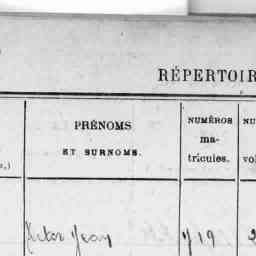 RÉPERTOIR
PRÉNOMS
ET SURNOMS.
NUMÉROS
ma-
tricules.
NU
vol
Victor Jean
719
2